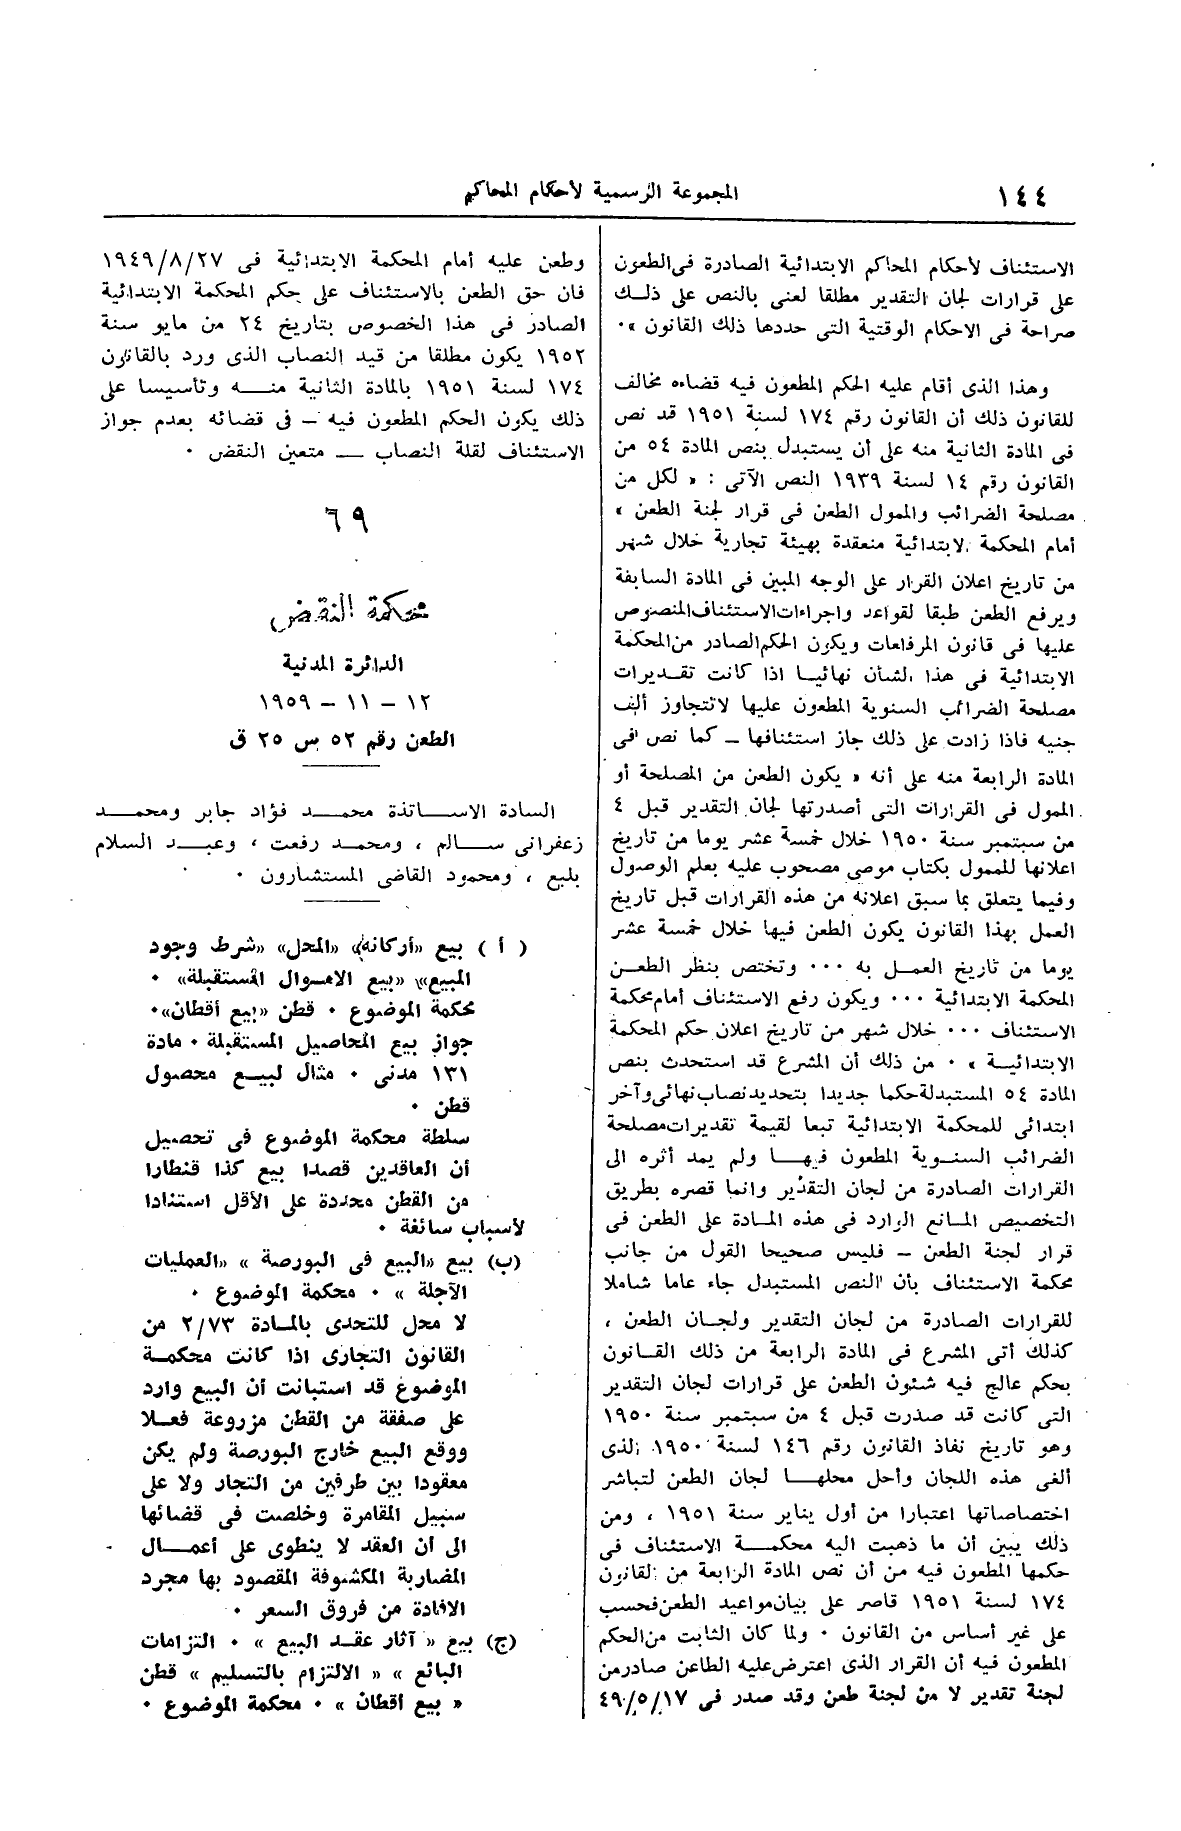 ١٤٤
المجموعة الرسمية لأحكام المحاكم
الاستئناف لأحكام المحاكم الابتدائية الصادرة فى الطعون
على قرارات لجان التقدير مطلقا لعنى بالنص على ذلك
صراحة فى الاحكام الوقتية التى حددها ذلك القانون »٠
وهذا الذى أقام عليه الحكم المطعون فيه قضاءه مخالف
للقانون ذلك أن القانون رقم ١٧٤ لسنة ١٩٥١ قد نص
فى المادة الثانية منه على أن يستبدل بنص المادة ٥٤ من
القانون رقم ١٤ لسنة ١٩٣٩ النص الآتى : « لكل من
مصلحة الضرائب والممول الطعن فى قرار لجنة الطعن »
أمام المحكمة الابتدائية منعقدة بهيئة تجارية خلال شهر
من تاريخ اعلان القرار على الوجه المبين فى المادة السابقة
ويرفع الطعن طبقا لقواعد واجراءات الاستئناف المنصوص
عليها فى قانون المرافعات ويكون الحكم الصادر من المحكمة
الابتدائية فى هذا الشأن نهائيا اذا كانت تقديرات
مصلحة الضرائب السنوية المطعون عليها لا تتجاوز ألف
جنيه فاذا زادت على ذلك جاز استئنافها ـ كما نص فى
المادة الرابعة منه على أنه « يكون الطعن من المصلحة أو
الممول فى القرارات التى أصدرتها لجان التقدير قبل ٤
من سبتمبر سنة ١٩٥٠ خلال خمسة عشر يوما من تاريخ
اعلانها للممول بكتاب موصى مصحوب عليه بعلم الوصول
وفيما يتعلق بما سبق اعلانه من هذه القرارات قبل تاريخ
العمل بهذا القانون يكون الطعن فيها خلال خمسة عشر
يوما من تاريخ العمل به ٠٠٠ وتختص بنظر الطعن
المحكمة الابتدائية ٠٠٠ ويكون رفع الاستئناف أمام محكمة
الاستئناف ٠٠٠ خلال شهر من تاريخ اعلان حكم المحكمة
الابتدائية » ٠ من ذلك أن المشرع قد استحدث بنص
المادة ٥٤ المستبدلة حكما جديدا بتحديد نصاب نهائى وآخر
ابتدائى للمحكمة الابتدائية تبعا لقيمة تقديرات مصلحة
الضرائب السنوية المطعون فيها ولم يمد أثره الى
القرارات الصادرة من لجان التقدير وانما قصره بطريق
التخصيص المانع الوارد فى هذه المادة على الطعن فى
قرار لجنة الطعن ـ فليس صحيحا القول من جانب
محكمة الاستئناف بأن النص المستبدل جاء عاما شاملا
للقرارات الصادرة من لجان التقدير ولجان الطعن ،
كذلك أتى المشرع فى المادة الرابعة من ذلك القانون
بحكم عالج فيه شئون الطعن على قرارات لجان التقدير
التى كانت قد صدرت قبل ٤ من سبتمبر سنة ١٩٥٠
وهو تاريخ نفاذ القانون رقم ١٤٦ لسنة ١٩٥٠ الذى
ألغى هذه اللجان وأحل محلها لجان الطعن لتباشر
اختصاصاتها اعتبارا من أول يناير سنة ١٩٥١ ، ومن
ذلك يبين أن ما ذهبت اليه محكمة الاستئناف فى
حكمها المطعون فيه من أن نص المادة الرابعة من القانون
١٧٤ لسنة ١٩٥١ قاصر على بيان مواعيد الطعن فحسب
على غير أساس من القانون ٠ ولما كان الثابت من الحكم
المطعون فيه أن القرار الذى اعترض عليه الطاعن صادر من
لجنة تقدير لا من لجنة طعن وقد صدر فى ٤٩/٥/١٧
وطعن عليه أمام المحكمة الابتدائية فى ١٩٤٩/٨/٢٧
فان حق الطعن بالاستئناف على حكم المحكمة الابتدائية
الصادر فى هذا الخصوص بتاريخ ٢٤ من مايو سنة
١٩٥٢ يكون مطلقا من قيد النصاب الذى ورد بالقانون
١٧٤ لسنة ١٩٥١ بالمادة الثانية منه وتأسيسا على
ذلك يكون الحكم المطعون فيه ـ فى قضائه بعدم جواز
الاستئناف لقلة النصاب ـ متعين النقض ٠
٦٩
محكمة النقض
الدائرة المدنية
١٢ ـ ١١ ـ ١٩٥٩
الطعن رقم ٥٢ س ٢٥ ق
السادة الاساتذة محمد فؤاد جابر ومحمد
زعفرانى سالم ، ومحمد رفعت ، وعبد السلام
بلبع ، ومحمود القاضى المستشارون ٠
( أ ) بيع «أركانه» «المحل» «شرط وجود
المبيع» «بيع الاموال المستقبلة» ٠
محكمة الموضوع ٠ قطن «بيع أقطان»٠
جواز بيع المحاصيل المستقبلة ٠ مادة
١٣١ مدنى ٠ مثال لبيع محصول
قطن ٠
سلطة محكمة الموضوع فى تحصيل
أن العاقدين قصدا بيع كذا قنطارا
من القطن محددة على الأقل استنادا
لأسباب سائغة ٠
(ب) بيع «البيع فى البورصة » «العمليات
الآجلة » ٠ محكمة الموضوع ٠
لا محل للتحدى بالمادة ٢/٧٣ من
القانون التجارى اذا كانت محكمة
الموضوع قد استبانت أن البيع وارد
على صفقة من القطن مزروعة فعلا
ووقع البيع خارج البورصة ولم يكن
معقودا بين طرفين من التجار ولا على
سبيل المقامرة وخلصت فى قضائها
الى أن العقد لا ينطوى على أعمال
المضاربة المكشوفة المقصود بها مجرد
الافادة من فروق السعر ٠
(ج) بيع « آثار عقد البيع » ٠ التزامات
البائع » « الالتزام بالتسليم » قطن
« بيع أقطان » ٠ محكمة الموضوع ٠